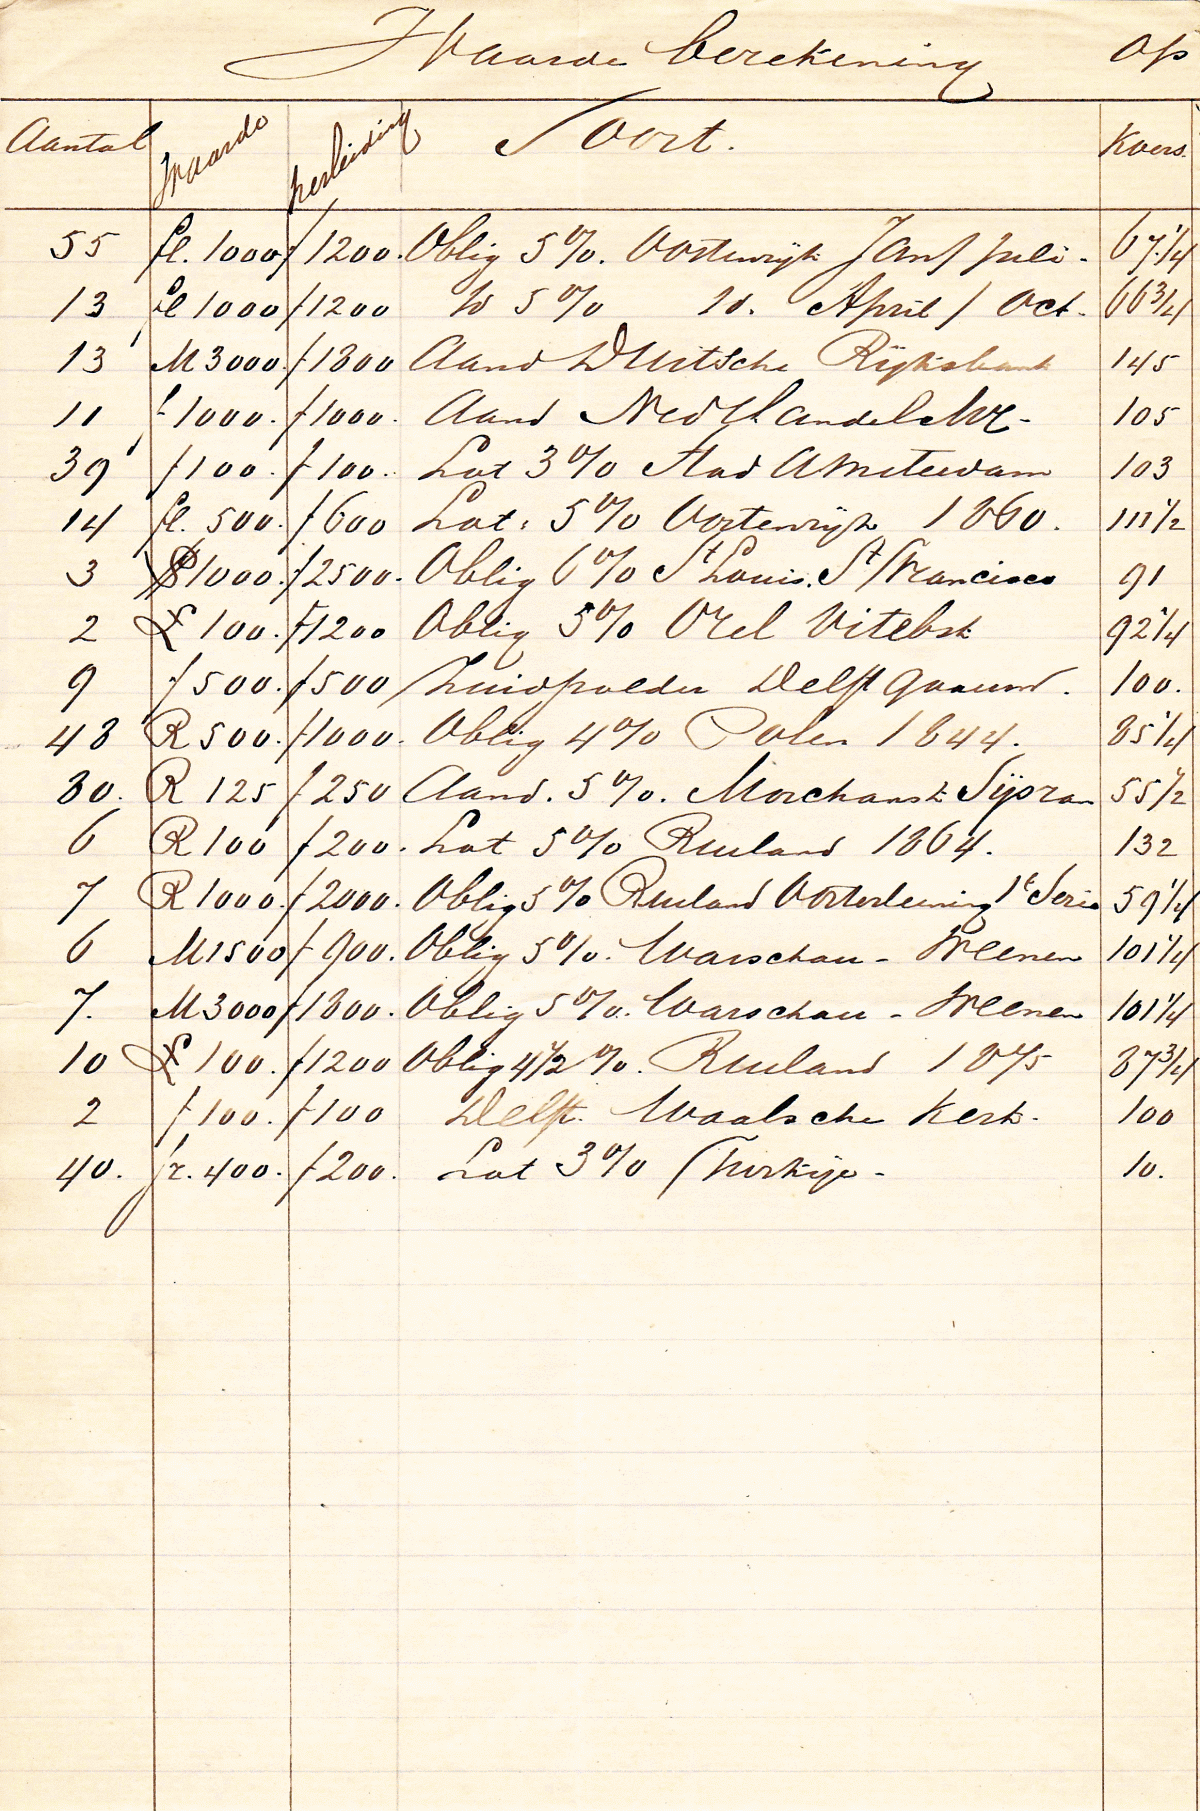 Waarde berekening op
Aantal Waarde herleiding Soort. Koers.
55 fl. 1000 f 1200. Oblig 5%. Oostenrijk Jan/Juli - 67 1/4
13 fl 1000 f 1200 Id 5% Id. April / Oct. 66 3/4
13 M 3000. f 1800 Aand Duitsche Rijksbank 145
11 f 1000. f 1000. Aand Ned Handel My - 105
39 f 100. f 100. Lot 3% Stad Amsterdam 103
14 fl. 500. f 600 Lot. 5% Oostenrijk 1860. 111 1/2
3 $ 1000. f 2500. Oblig 6% St Louis. St Francisco 91
2 £ 100. f 1200 Oblig 5% Orel Vitebsk 92 1/4
9 f 500. f 500 Zuidpolder Delfgaauw. 100.
48 R 500. f 1000. Oblig 4% Polen 1844. 85 1/4
80. R 125 f 250 Aand. 5%. Morchansk Sijsran 55 1/2
6 R 100 f 200. Lot 5% Rusland 1864. 132
7 R 1000. f 2000. Oblig 5% Rusland Oosterleening 1e Serie 59 1/4
6 M 1500 f 900. Oblig 5%. Warschau - Weenen 101 1/4
7. M 3000 f 1800. Oblig 5%. Warschau - Weenen 101 1/4
10 £ 100. f 1200 Oblig 4 1/2 %. Rusland 1875 87 3/4
2 f 100. f 100 Delft. Waalsche Kerk. 100
40. fr. 400. f 200. Lot 3% Turkije - 10.